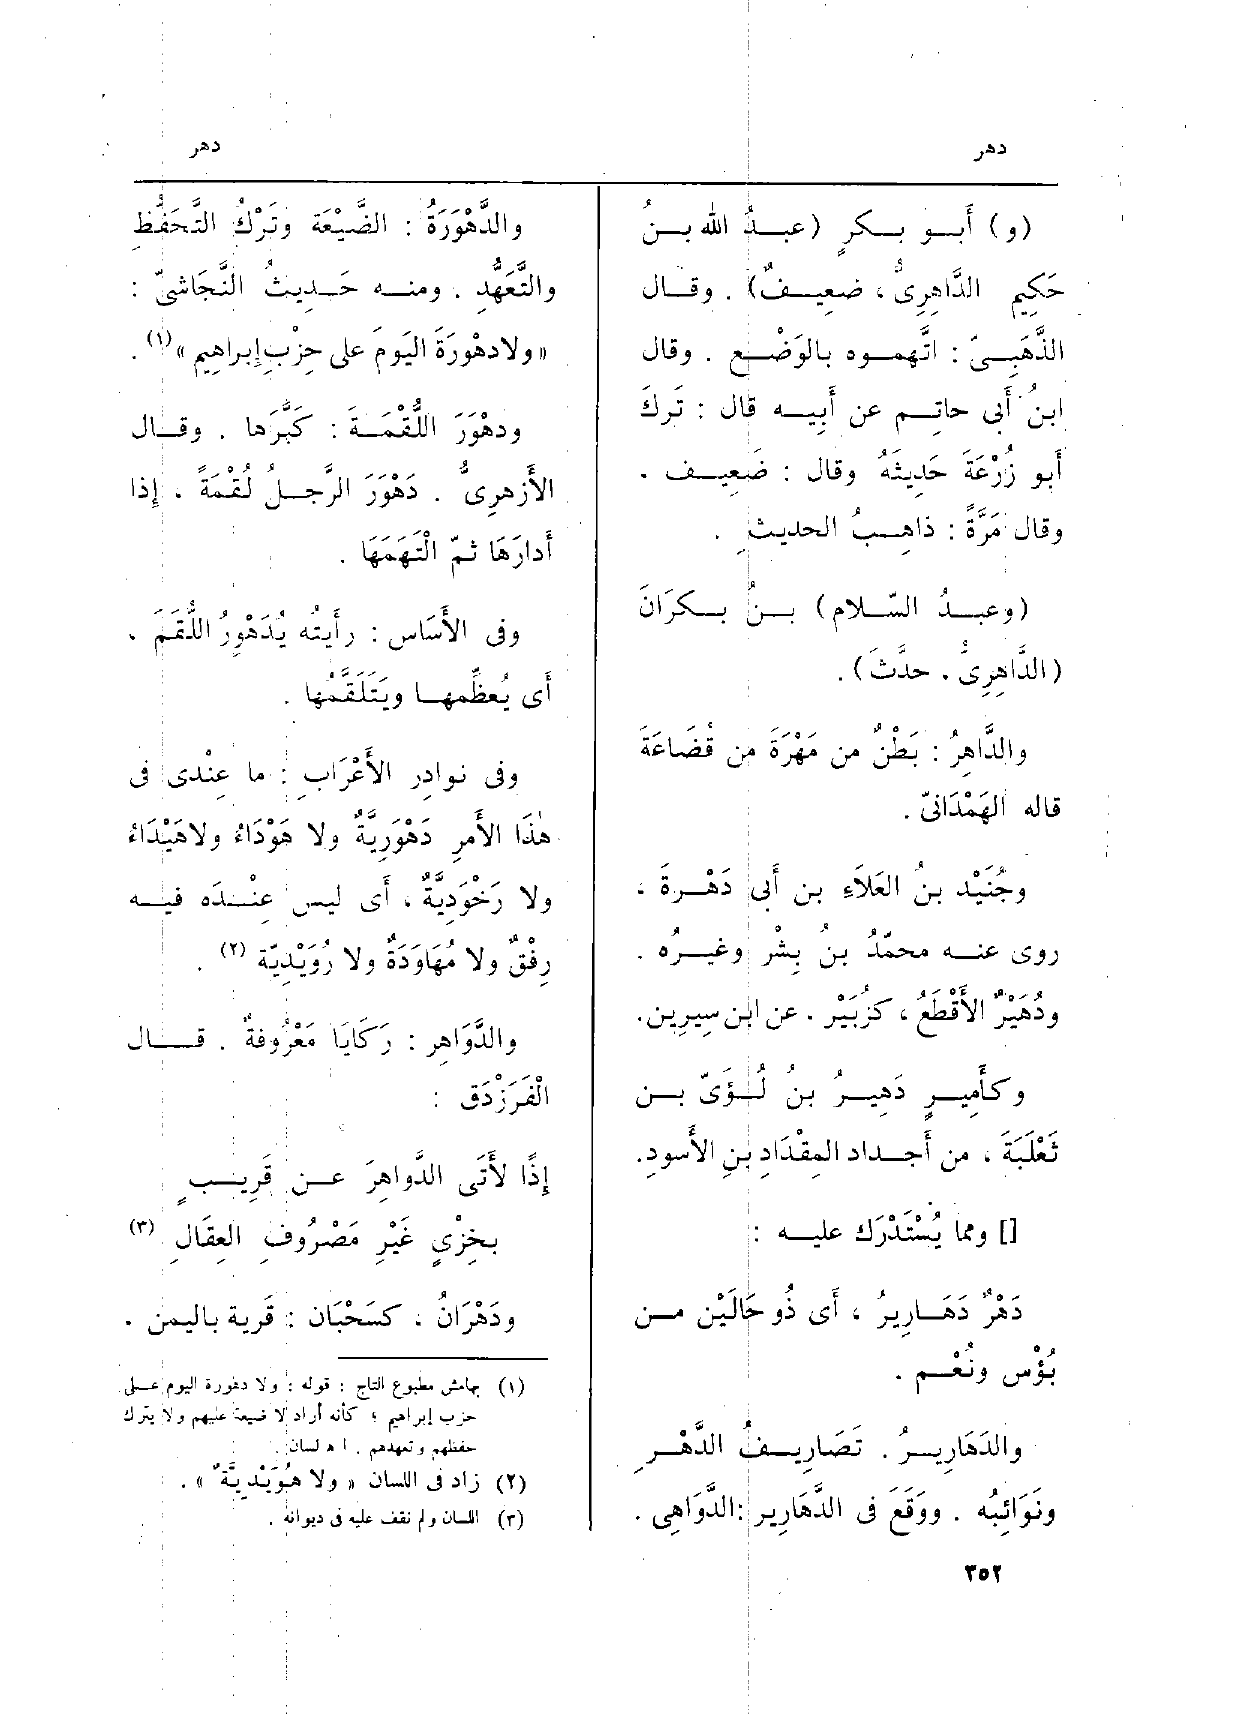 دهر
دهر
(و) أَبو بكرٍ (عبدُ الله بنُ
حَكِيمٍ الدَّاهِرِىُّ ، ضعِيفٌ) . وقال
الذَّهَبِىّ : اتَّهموه بالوَضْعِ . وقال
ابنُ أَبى حاتم عن أَبِيه قال : تَركَ
أَبو زُرْعَةَ حَدِيثَهُ وقال : ضَعِيف .
وقال مَرَّةً : ذاهِبُ الحديثِ .
(وعبدُ السّلام) بنُ بكرَانَ
(الدَّاهِرِىُّ . حدَّثَ) .
والدَّاهِرُ : بَطْنٌ من مَهْرَةَ من قُضَاعَةَ
قاله الهَمْدَانىّ .
وجُنَيْد بنُ العَلاَءِ بن أَبى دَهْرةَ ،
روى عنه محمّدُ بنُ بِشْر وغيرُه .
ودُهَيْرٌ الأَقْطَعُ ، كزُبَيْر . عن ابن سِيرِين.
وكأَمِيرٍ دَهِيرُ بنُ لُؤَىّ بن
ثَعْلَبَةَ ، من أَجداد المِقْدَادِ بنِ الأَسود.
[] ومما يُسْتَدْرَك عليه :
دَهْرٌ دَهَارِيرُ ، أَى ذُو حَالَيْن من
بُؤْس ونُعْم .
والدَهَارِيرُ . تَصَارِيفُ الدَّهْرِ
ونَوَائِبُه . ووَقَعَ فى الدَّهَارِير :الدَّوَاهِى .
والدَّهْوَرَةُ : الضَّيْعَة وتَرْكُ التَّحَفُّظِ
والتَّعَهُّدِ . ومنه حَدِيثُ النَّجَاشىّ :
« ولادهْورَةَ اليَومَ على حِزْبِ إِبراهِيم »(١) .
ودهْوَرَ اللُّقْمَةَ : كَبَّرَها . وقال
الأَزهرىُّ . دَهْوَرَ الرَّجلُ لُقْمَةً ، إِذا
أَدارَهَا ثمّ الْتَهَمَهَا .
وفى الأَسَاس : رأَيته يُدَهْوِرُ اللُّقَمَ ،
أَى يُعظِّمها ويَتَلَقَّمُها .
وفى نوادر الأَعْرَابِ : ما عنْدى فى
هٰذَا الأَمرِ دَهْوَرِيَّةٌ ولا هَوْدَاءُ ولاهَيْدَاءُ
ولا رَخْوَدِيَّةٌ ، أَى ليس عنْدَه فيه
رِفْقٌ ولا مُهَاوَدَةٌ ولا رُوَيْدِيَة (٢) .
والدَّوَاهِر : رَكَايَا مَعْرُوفةٌ . قال
الْفَرَزْدَق :
إِذًا لأَتَى الدَّواهِرَ عن قَرِيبٍ
بخِزْىٍ غَيْرِ مَصْرُوفِ العِقَالِ (٣)
ودَهْرَانُ ، كسَحْبَان : قَرية باليمن .
(١) بهامش مطبوع التاج : قوله : ولا دهورة اليوم على
حزب إبراهيم ؛ كأنه أراد لا ضيعة عليهم ولا يترك
حفظهم وتعهدهم . ا ه لسان .
(٢) زاد فى اللسان « ولا هُوَيْدِيَّةٌ » .
(٣) اللسان ولم نقف عليه فى ديوانه .
٣٥٢